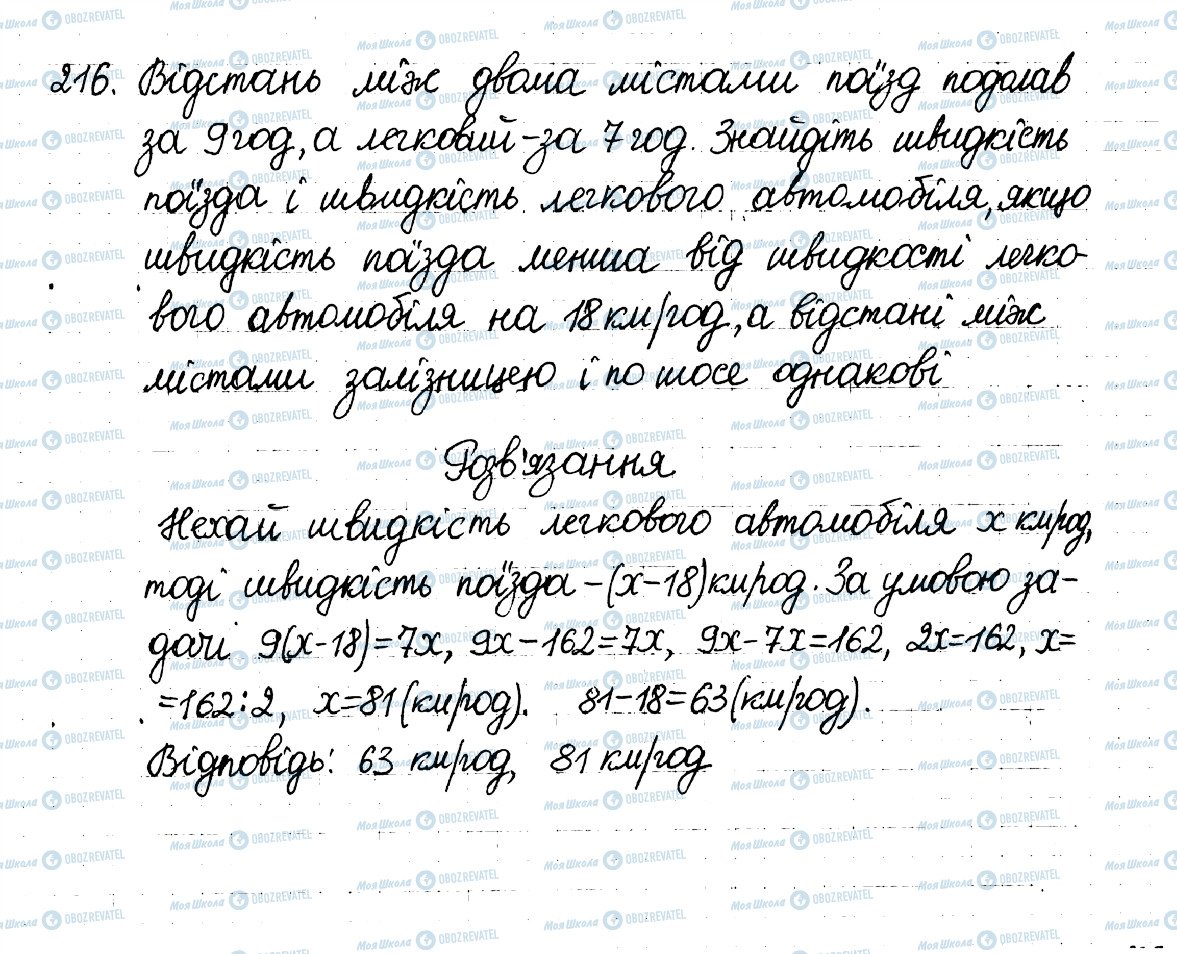 216. Відстань між двома містами поїзд подолав
за 9 год, а легковий - за 7 год. Знайдіть швидкість
поїзда і швидкість легкового автомобіля, якщо
швидкість поїзда менша від швидкості легко-
вого автомобіля на 18 км/год, а відстані між
містами залізницею і по шосе однакові
Розв'язання
Нехай швидкість легкового автомобіля x км/год,
тоді швидкість поїзда - (x-18) км/год. За умовою за-
дачі 9(x-18)=7x, 9x-162=7x, 9x-7x=162, 2x=162, x=
=162:2, x=81 (км/год). 81-18=63 (км/год).
Відповідь: 63 км/год, 81 км/год
Моя Школа OBOZREVATEL